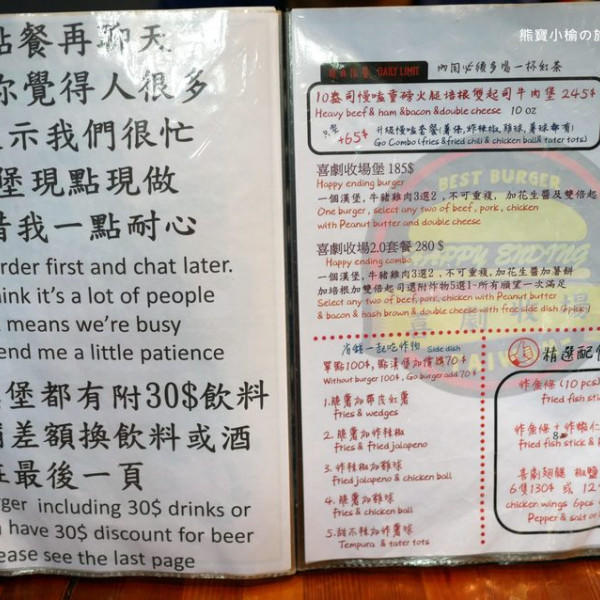 點餐再聊天
你覺得人很多
示我們很忙
堡現點現做
借我一點耐心
order first and chat later.
think it's a lot of people
means we're busy
lend me a little patience
堡都有附30$飲料
補差額換飲料或酒
在最後一頁
burger including 30$ drinks or
have 30$ discount for beer
please see the last page
熊寶小榆の旅
DAILY LIMIT 內固必後多喝一杯紅茶
10盎司慢嗑重磅火腿培根雙起司牛肉堡 245$
Heavy beef & ham &bacon &double cheese 10 oz
+65$ 升級慢嗑套餐(薯條,炸辣椒,雞球,薯球都有)
Go Combo (fries &fried chili & chicken ball& tater tots)
喜劇收場堡 185$
Happy ending burger
一個漢堡,牛豬雞肉3選2,不可重複, 加花生醬及雙倍起
One burger, select any two of beef, pork, chicken
with Peanut butter and double cheese
喜劇收場2.0套餐 280 $
Happy ending combo
一個漢堡,牛豬雞肉3選2,不可重複,加花生醬加薯餅
加培根加雙倍起司選附炸物5選1~所有願望一次滿足
Select any two of beef, pork, chicken with Peanut butter
& bacon & hash brown & double cheese with free side dish (1pick)
BEST BURGER
HAPPY ENDING
喜劇收場
TAIWAN
省錢一起吃炸物 Side dish
單點100$, 點漢堡加價購70$
Without burger 100$, Go burger add 70$
1.脆薯加帶皮紅薯
fries & wedges
2.脆薯加炸辣椒
fries & fried jalapeno
3.炸辣椒加雞球
fried jalapeno & chicken ball
4.脆薯加雞球
fries & chicken ball
5.甜不辣加炸薯球
Tempura & tater tots
精選配
炸魚條 (10 pcs)
fried fish stick
炸魚條 + 炸蝦仁
8
fried fish stick &
喜劇翅腿 椒鹽
6隻130$ 或 12
chicken wings 6pcs
Pepper & salt or